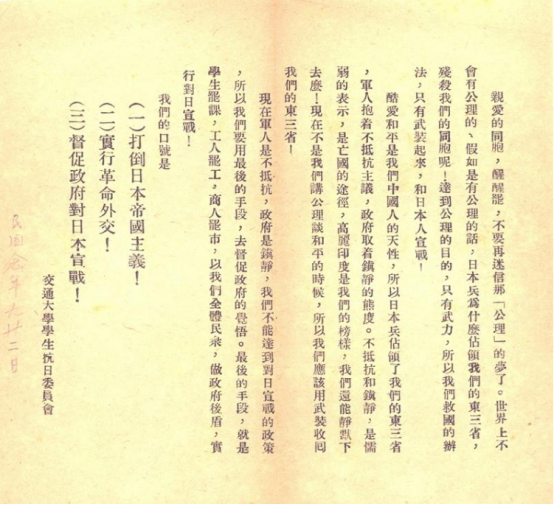 親愛的同胞，醒醒罷，不要再迷信那「公理」的夢了。世界上不
會有公理的、假如是有公理的話，日本兵爲什麼佔領我們的東三省，
殘殺我們的同胞呢！達到公理的目的，只有武力，所以我們救國的辦
法，只有武裝起來，和日本人宣戰！
酷愛和平是我們中國人的天性，所以日本兵佔領了我們的東三省
，軍人抱着不抵抗主議，政府取着鎮靜的態度。不抵抗和鎮靜，是儒
弱的表示，是亡國的途徑，高麗印度是我們的榜樣，我們還能靜默下
去麼！現在不是我們講公理談和平的時候，所以我們應該用武裝收囘
我們的東三省！
現在軍人是不抵抗，政府是鎮靜，我們不能達到對日宣戰的政策
，所以我們要用最後的手段，去督促政府的覺悟。最後的手段，就是
學生罷課，工人罷工，商人罷市，以我們全體民衆，做政府後盾，實
行對日宣戰！
我們的口號是
（一）打倒日本帝國主義！
（二）實行革命外交！
（三）督促政府對日本宣戰！
交通大學學生抗日委員會
民國念年九廿二日